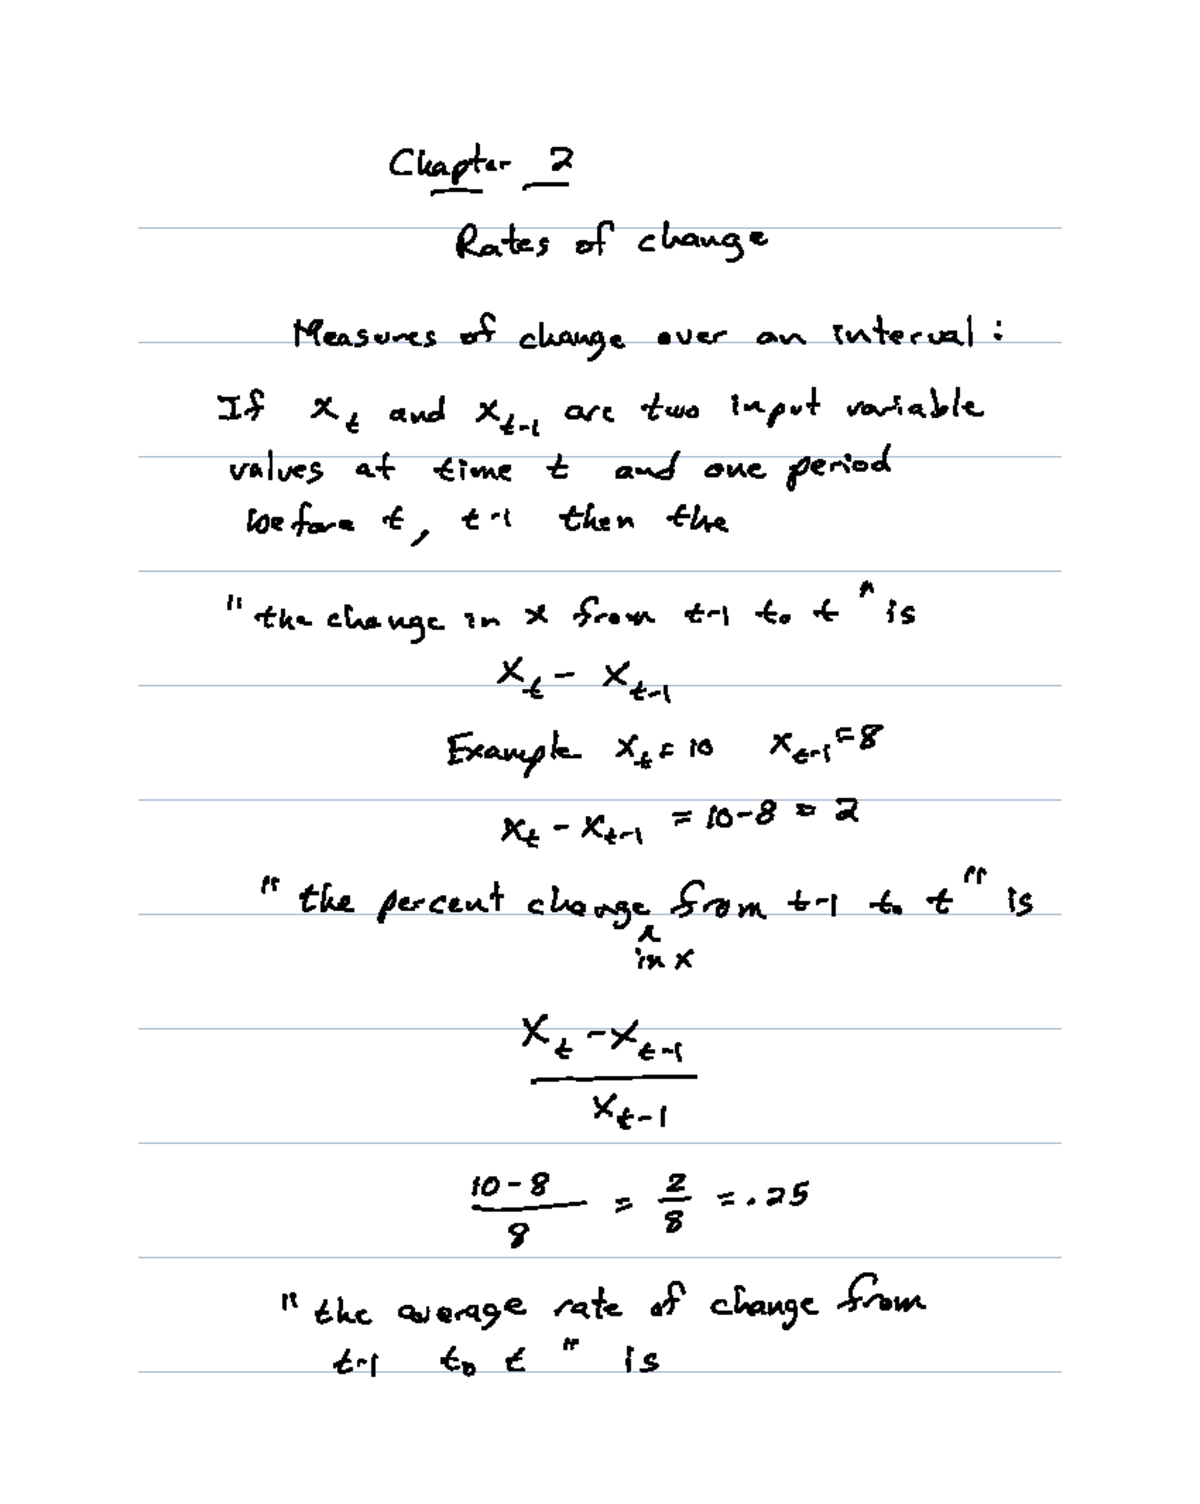 Chapter 2
Rates of change
Measures of change over an interval:
If x_t and x_t-1 are two input variable
values at time t and one period
before t, t-1 then the
"the change in x from t-1 to t" is
x_t - x_t-1
Example x_t = 10 x_t-1 = 8
x_t - x_t-1 = 10-8 = 2
"the percent change from t-1 to t" is
^
in x
x_t - x_t-1
x_t-1
10-8 = 2 = .25
8 8
"the average rate of change from
t-1 to t" is